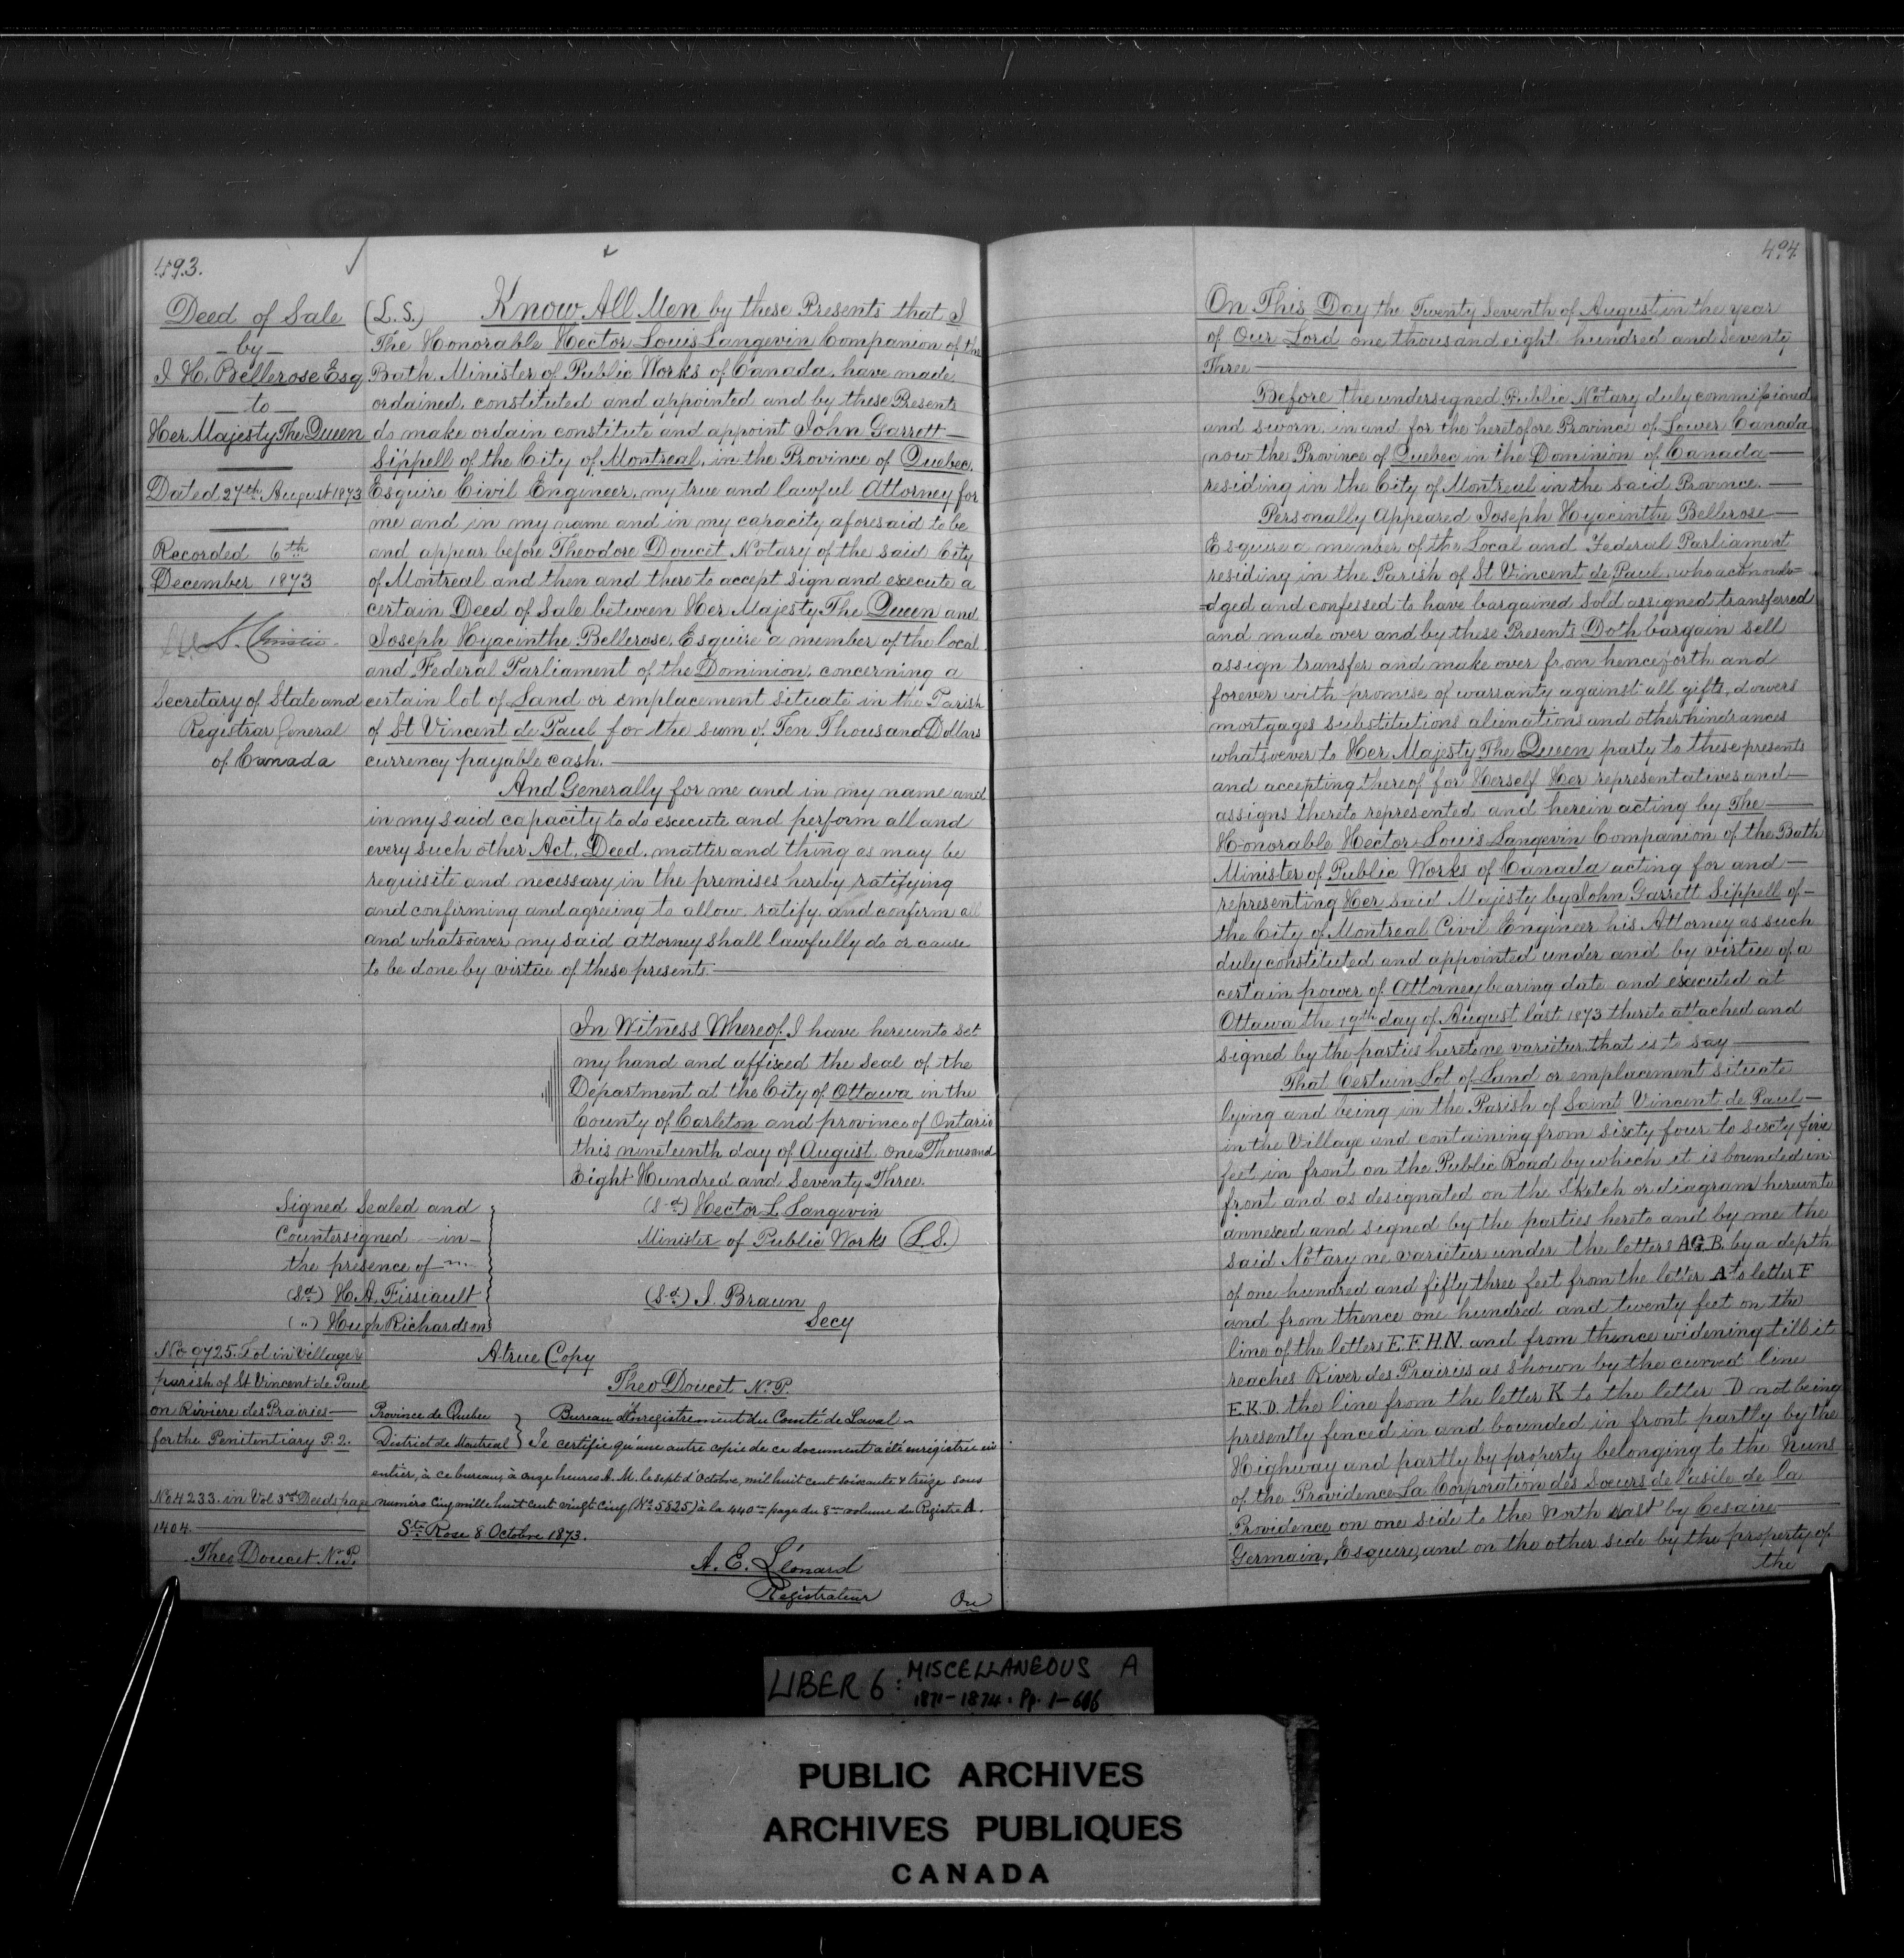 493.
Deed of Sale
by
J. H. Bellerose Esq
to
Her Majesty The Queen
Dated 27th August 1873
Recorded 6th
December 1873
Secretary of State and
Registrar General
of Canada
(L.S.) Know All Men by these Presents that I
The Honorable Hector Louis Langevin Companion of the
Bath, Minister of Public Works of Canada, have made,
ordained, constituted and appointed and by these Presents
do make ordain constitute and appoint John Garrett
Sippell of the City of Montreal, in the Province of Quebec,
Esquire Civil Engineer, my true and lawful Attorney for
me and in my name and in my capacity aforesaid to be
and appear before Theodore Doucet Notary of the said City
of Montreal and then and there to accept sign and execute a
certain Deed of Sale between Her Majesty The Queen and
Joseph Hyacinthe Bellerose, Esquire a member of the local
and Federal Parliament of the Dominion, concerning a
certain lot of Land or emplacement situate in the Parish
of St Vincent de Paul for the sum of Ten Thousand Dollars
currency payable cash.
And Generally for me and in my name and
in my said capacity to do execute and perform all and
every such other Act, Deed, matter and thing as may be
requisite and necessary in the premises hereby ratifying
and confirming and agreeing to allow, ratify, and confirm all
and whatsoever my said attorney shall lawfully do or cause
to be done by virtue of these presents.
In Witness Whereof I have hereunto set
my hand and affixed the Seal of the
Department at the City of Ottawa in the
County of Carleton and province of Ontario
this nineteenth day of August one Thousand
Eight Hundred and Seventy-Three.
Signed Sealed and
Countersigned in
the presence of
(Sd) H. A. Fissiault
(") Hugh Richardson
(Sd) Hector L. Langevin
Minister of Public Works (L.S.)
(Sd) J. Braun
Secy
A true Copy
Theo Doucet N.P.
No 9725. Lot in Village &
parish of St Vincent de Paul
on Riviere des Prairies
for the Penitentiary P. 2.
No 4233. in Vol 3rd Deeds page
1404.
Theo Doucet N.P.
Province de Quebec
District de Montreal
Bureau d'Enregistrement du Comté de Laval
Je certifie qu'une autre copie de ce document a été enrégistrée en
entier, à ce bureau, à onze heures A. M. le sept d'Octobre, mil huit cent soixante & treize sous
numéro Cinq mille huit cent vingt cinq (No 5825) à la 440me page du 8me volume du Registre A.
Ste Rose 8 Octobre 1873.
A. E. Léonard
Registrateur
On
494
On This Day the Twenty Seventh of August in the year
of Our Lord one thousand eight hundred and seventy
Three
Before the undersigned Public Notary duly commissioned
and sworn, in and for the heretofore Province of Lower Canada
now the Province of Quebec in the Dominion of Canada
residing in the City of Montreal in the said Province.
Personally Appeared Joseph Hyacinthe Bellerose
Esquire a member of the Local and Federal Parliament
residing in the Parish of St Vincent de Paul, who acknowle=
=dged and confessed to have bargained Sold assigned transferred
and made over and by these Presents Doth bargain sell
assign transfer and make over from henceforth and
forever with promise of warranty against all gifts, dowers
mortgages substitutions alienations and other hindrances
whatsoever to Her Majesty The Queen party to these presents
and accepting thereof for Herself Her representatives and
assigns thereto represented and herein acting by The
Honorable Hector Louis Langevin Companion of the Bath
Minister of Public Works of Canada acting for and
representing Her said Majesty by John Garrett Sippell of
the City of Montreal Civil Engineer his Attorney as such
duly constituted and appointed under and by virtue of a
certain power of Attorney bearing date and executed at
Ottawa the 19th day of August last 1873 thereto attached and
signed by the parties hereto ne varietur that is to say
That Certain Lot of Land or emplacement situate
lying and being in the Parish of Saint Vincent de Paul
in the Village and containing from sixty four to sixty five
feet in front on the Public Road by which it is bounded in
front and as designated on the Sketch or diagram hereunto
annexed and signed by the parties hereto and by me the
said Notary ne varietur under the letters A.G.B. by a depth
of one hundred and fifty three feet from the letter A to letter F
and from thence one hundred and twenty feet on the
line of the letters E. F. H. N. and from thence widening till it
reaches River des Prairies as shown by the curved line
E. K. D. the line from the letter K to the letter D not being
presently fenced in and bounded in front partly by the
Highway and partly by property belonging to the Nuns
of the Providence La Corporation des Sœurs de l'asile de la
Providence on one side to the North East by Cesaire
Germain, Esquire, and on the other side by the property of
the
LIBER 6: MISCELLANEOUS A
1871-1874. Pp. 1-666
PUBLIC ARCHIVES
ARCHIVES PUBLIQUES
CANADA